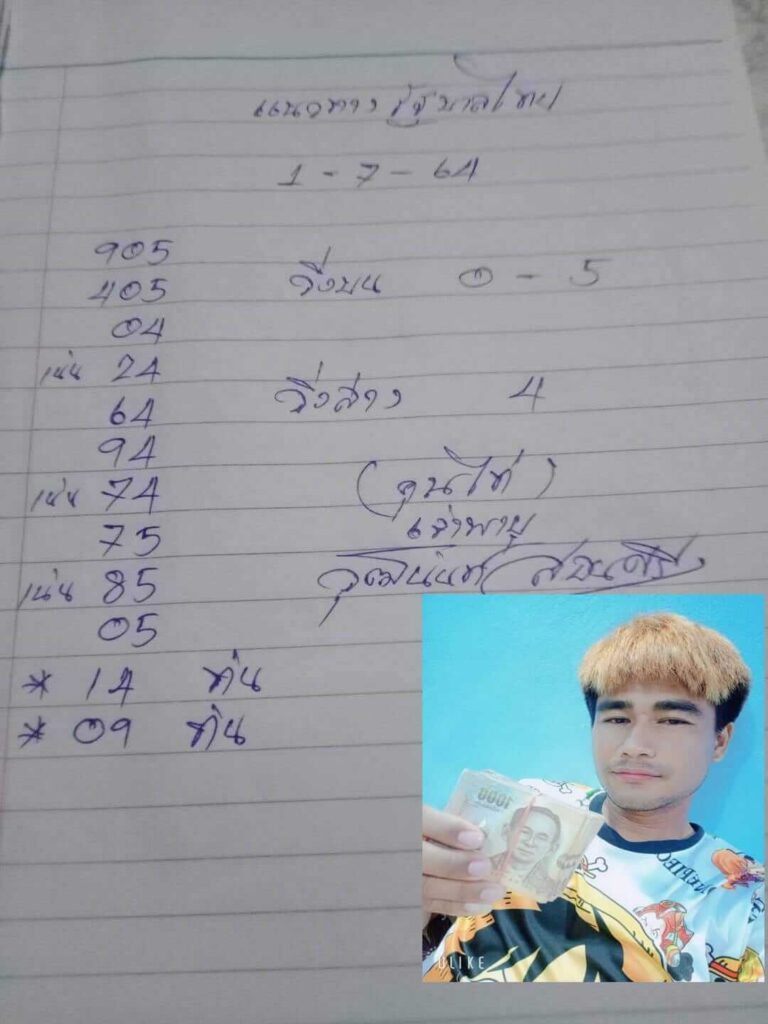 แนวทางรัฐบาลไทย
1 - 7 - 64
905
405
04
เน่น 24
64
94
เน่น 74
75
เน่น 85
05
* 14 ทุ่น
* 09 ทุ่น
วิ่งบน 0 - 5
วิ่งล่าง 4
เจ้าพายุ
1000
ULIKE